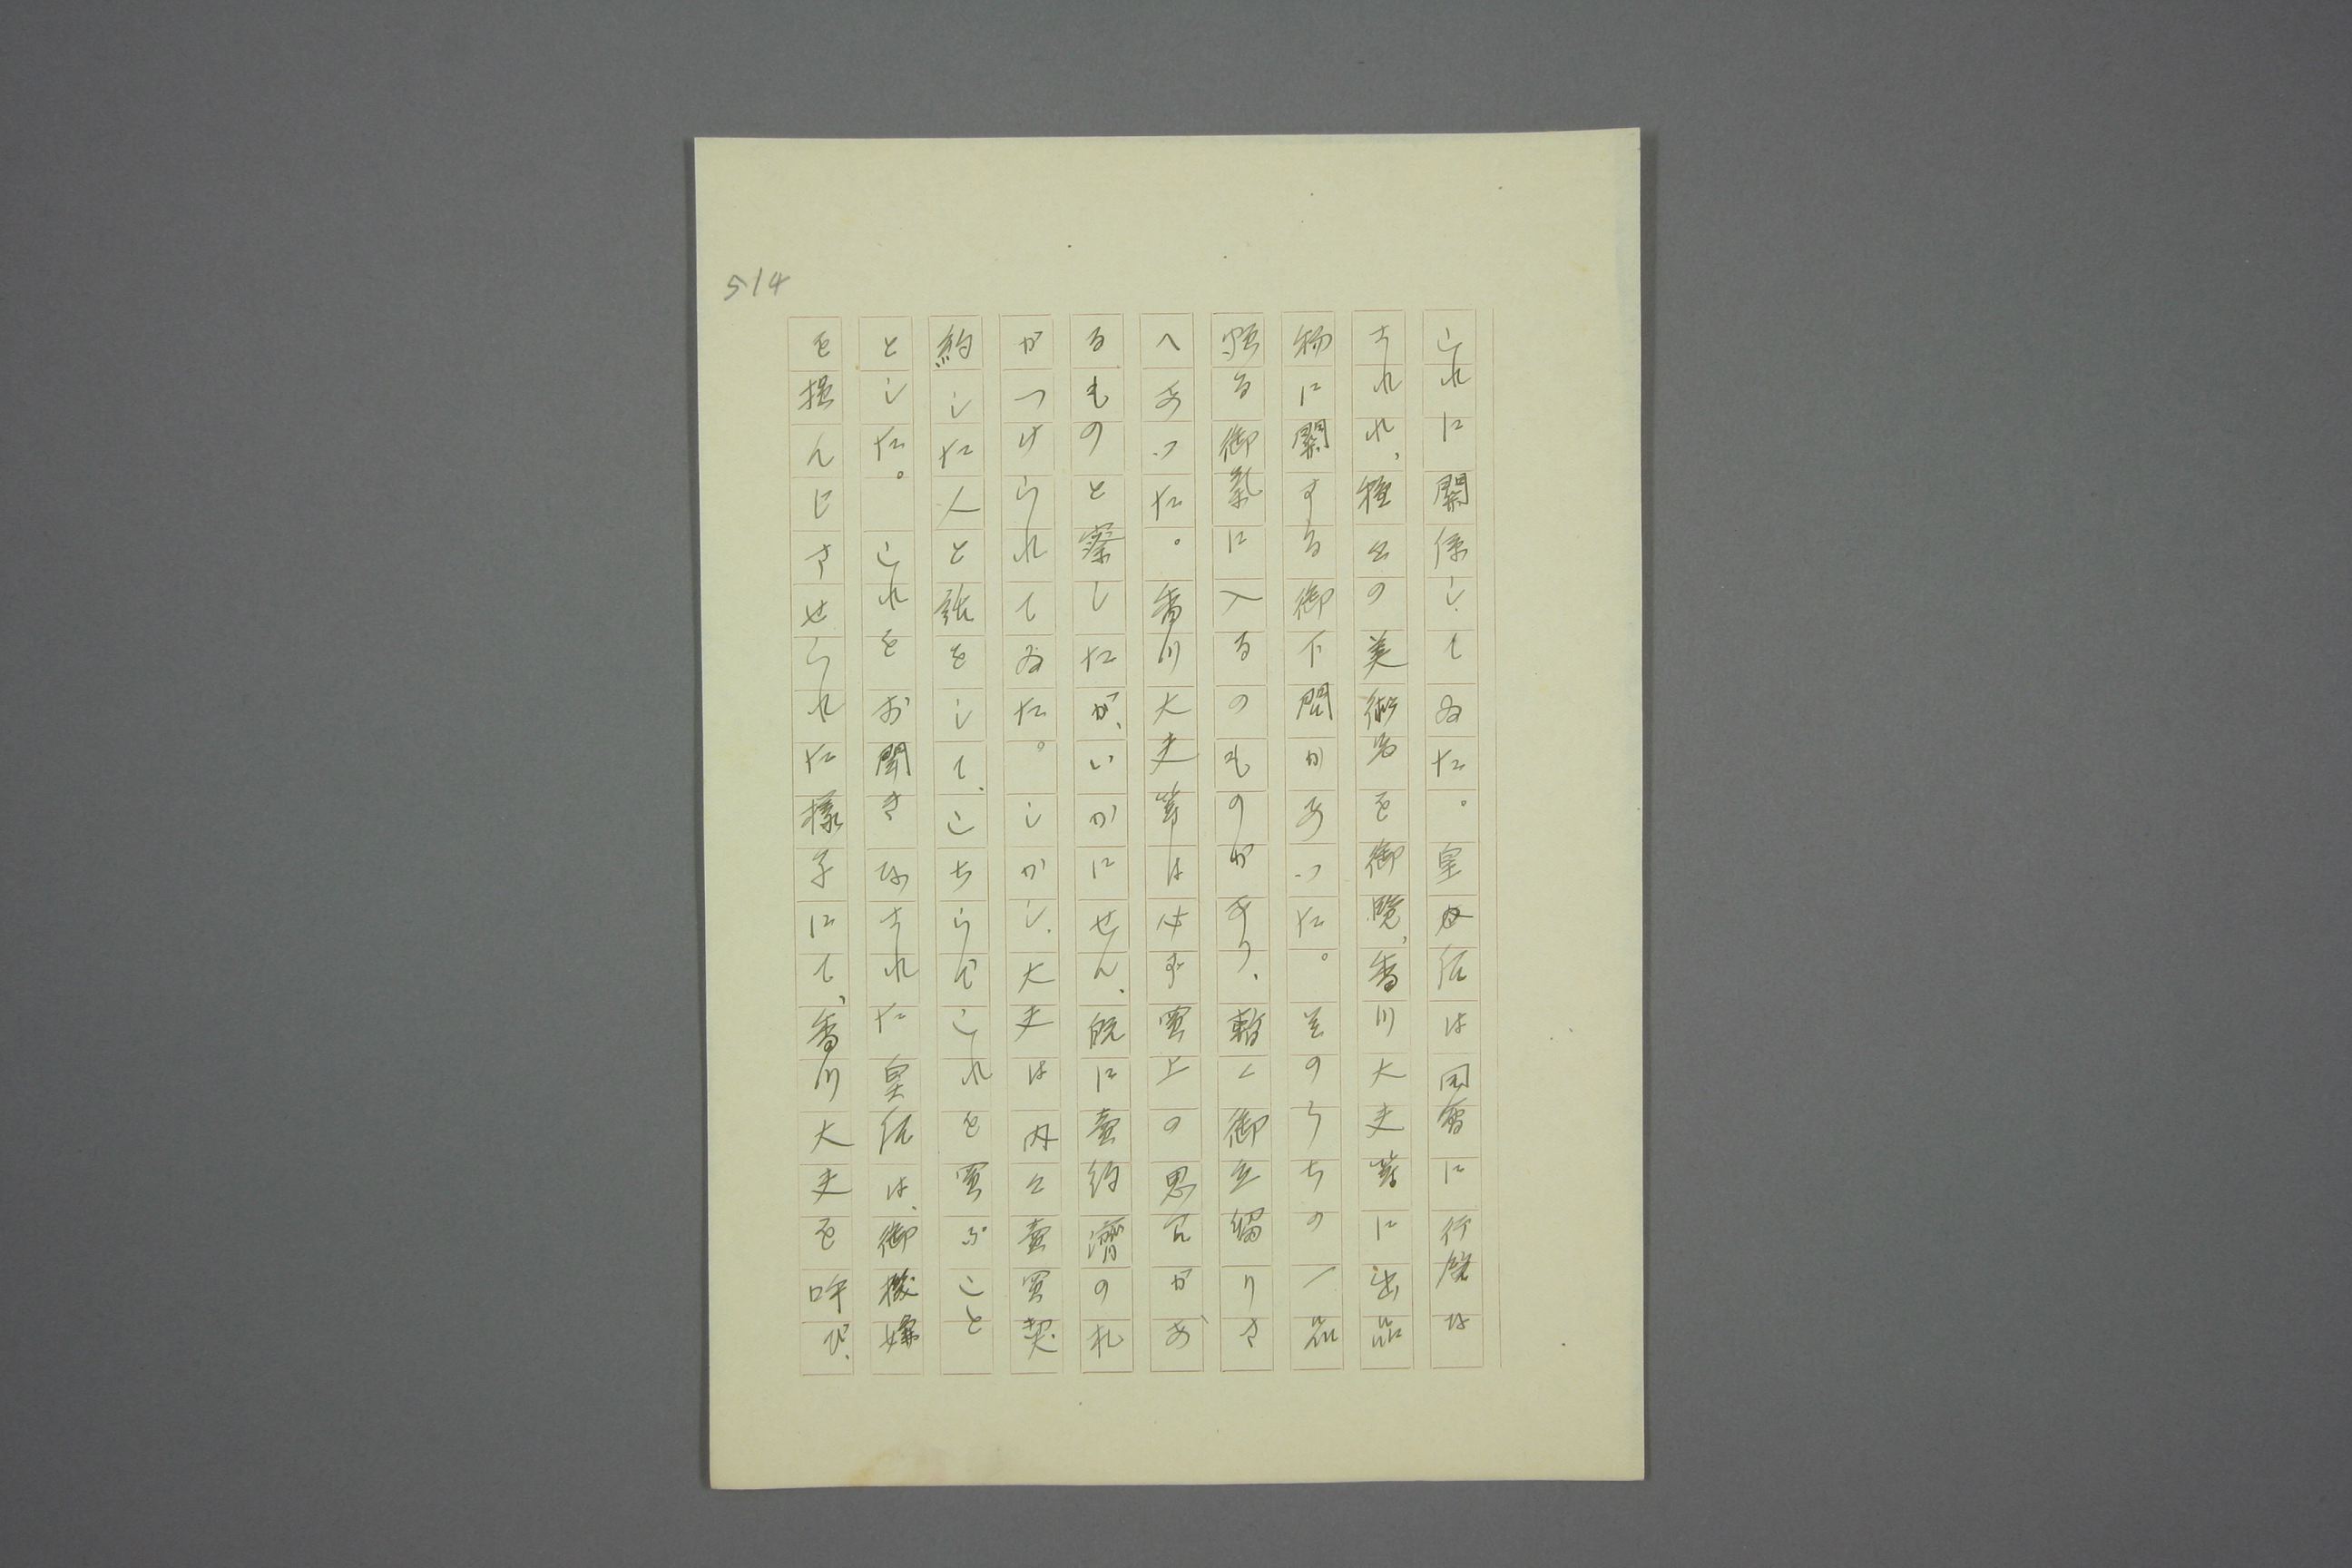 514
これに關係してゐた。皇后は同會に行啓な
された、種々の美術品を御覽、香川大夫等に出品
物に關する御下問があつた。そのうちの一品
頗る御氣に入るのものがあり、暫く御立留りさ
へあつた。香川大夫等は必ず買上の思召があ
るものと察したが、いかにせん、既に賣約濟の札
がつけられてゐた。しかし、大夫は内々賣買契
約した人と話をして、こちらでこれを買ふこと
とした。これをお聞きなされた皇后は、御機嫌
を損んじさせられた樣子にて、香川大夫を呼び、